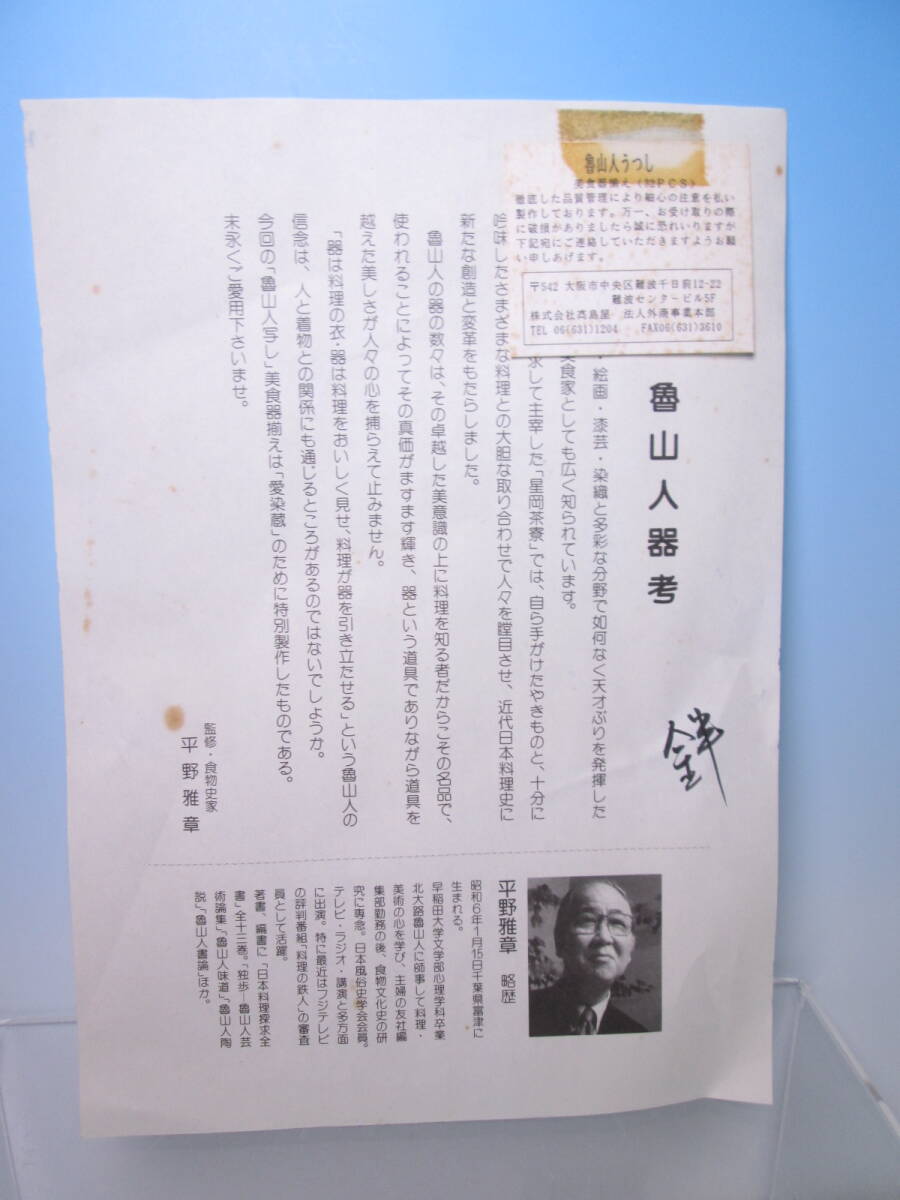 魯山人うつし
美食器揃え(32PCS)
徹底した品質管理により細心の注意を払い
製作しております。万一、お受け取りの際
に破損がありましたら誠に恐れいりますが
下記宛にご連絡していただきますようお願
い申しあげます。
〒542 大阪市中央区難波千日前12-22
難波センタービル5F
株式会社髙島屋 法人外商事業本部
TEL 06(631)1204 FAX06(631)3610
魯山人器考
・絵画・漆芸・染織と多彩な分野で如何なく天才ぶりを発揮した
美食家としても広く知られています。
求して主宰した「星岡茶寮」では、自ら手がけたやきものと、十分に
吟味したさまざまな料理との大胆な取り合わせで人々を瞠目させ、近代日本料理史に
新たな創造と変革をもたらしました。
魯山人の器の数々は、その卓越した美意識の上に料理を知る者だからこその名品で、
使われることによってその真価がますます輝き、器という道具でありながら道具を
越えた美しさが人々の心を捕らえて止みません。
「器は料理の衣・器は料理をおいしく見せ、料理が器を引き立たせる」という魯山人の
信念は、人と着物との関係にも通じるところがあるのではないでしょうか。
今回の「魯山人写し」美食器揃えは「愛染蔵」のために特別製作したものである。
末永くご愛用下さいませ。
監修・食物史家
平野雅章
平野雅章 略歴
昭和6年1月15日千葉県富津に
生まれる。
早稲田大学文学部心理学科卒業
北大路魯山人に師事して料理・
美術の心を学び、主婦の友社編
集部勤務の後、食物文化史の研
究に専念。日本風俗史学会会員。
テレビ・ラジオ・講演と多方面
に出演。特に最近はフジテレビ
の評判番組「料理の鉄人」の審査
員として活躍。
著書、編書に「日本料理探求全
書」全十二巻。「独歩―魯山人芸
術論集」「魯山人味道」「魯山人陶
説」「魯山人書論」ほか。